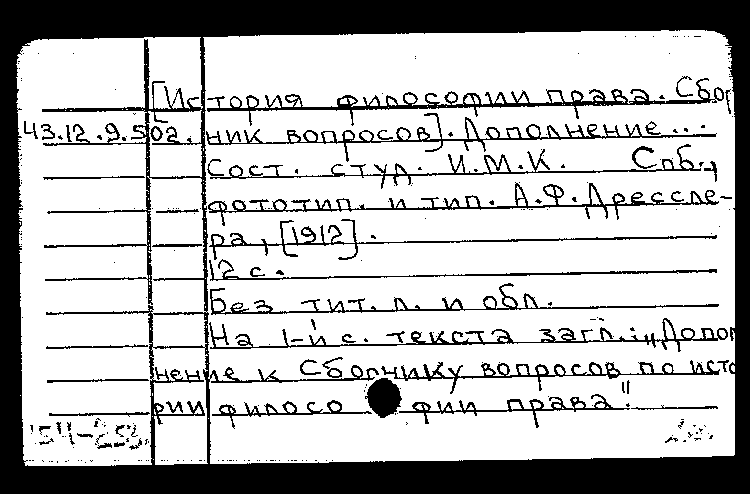 [История философии права. Сбор
43.12.9.502. ник вопросов]. Дополнение...
Сост. студ. И.М.К. Спб.,
фототип. и тип. А.Ф.Дрессле-
ра, [1912].
12 с.
Без тит. л. и обл.
На 1-й с. текста загл.: „Допол
нение к Сборнику вопросов по исто
рии филосо фии права".